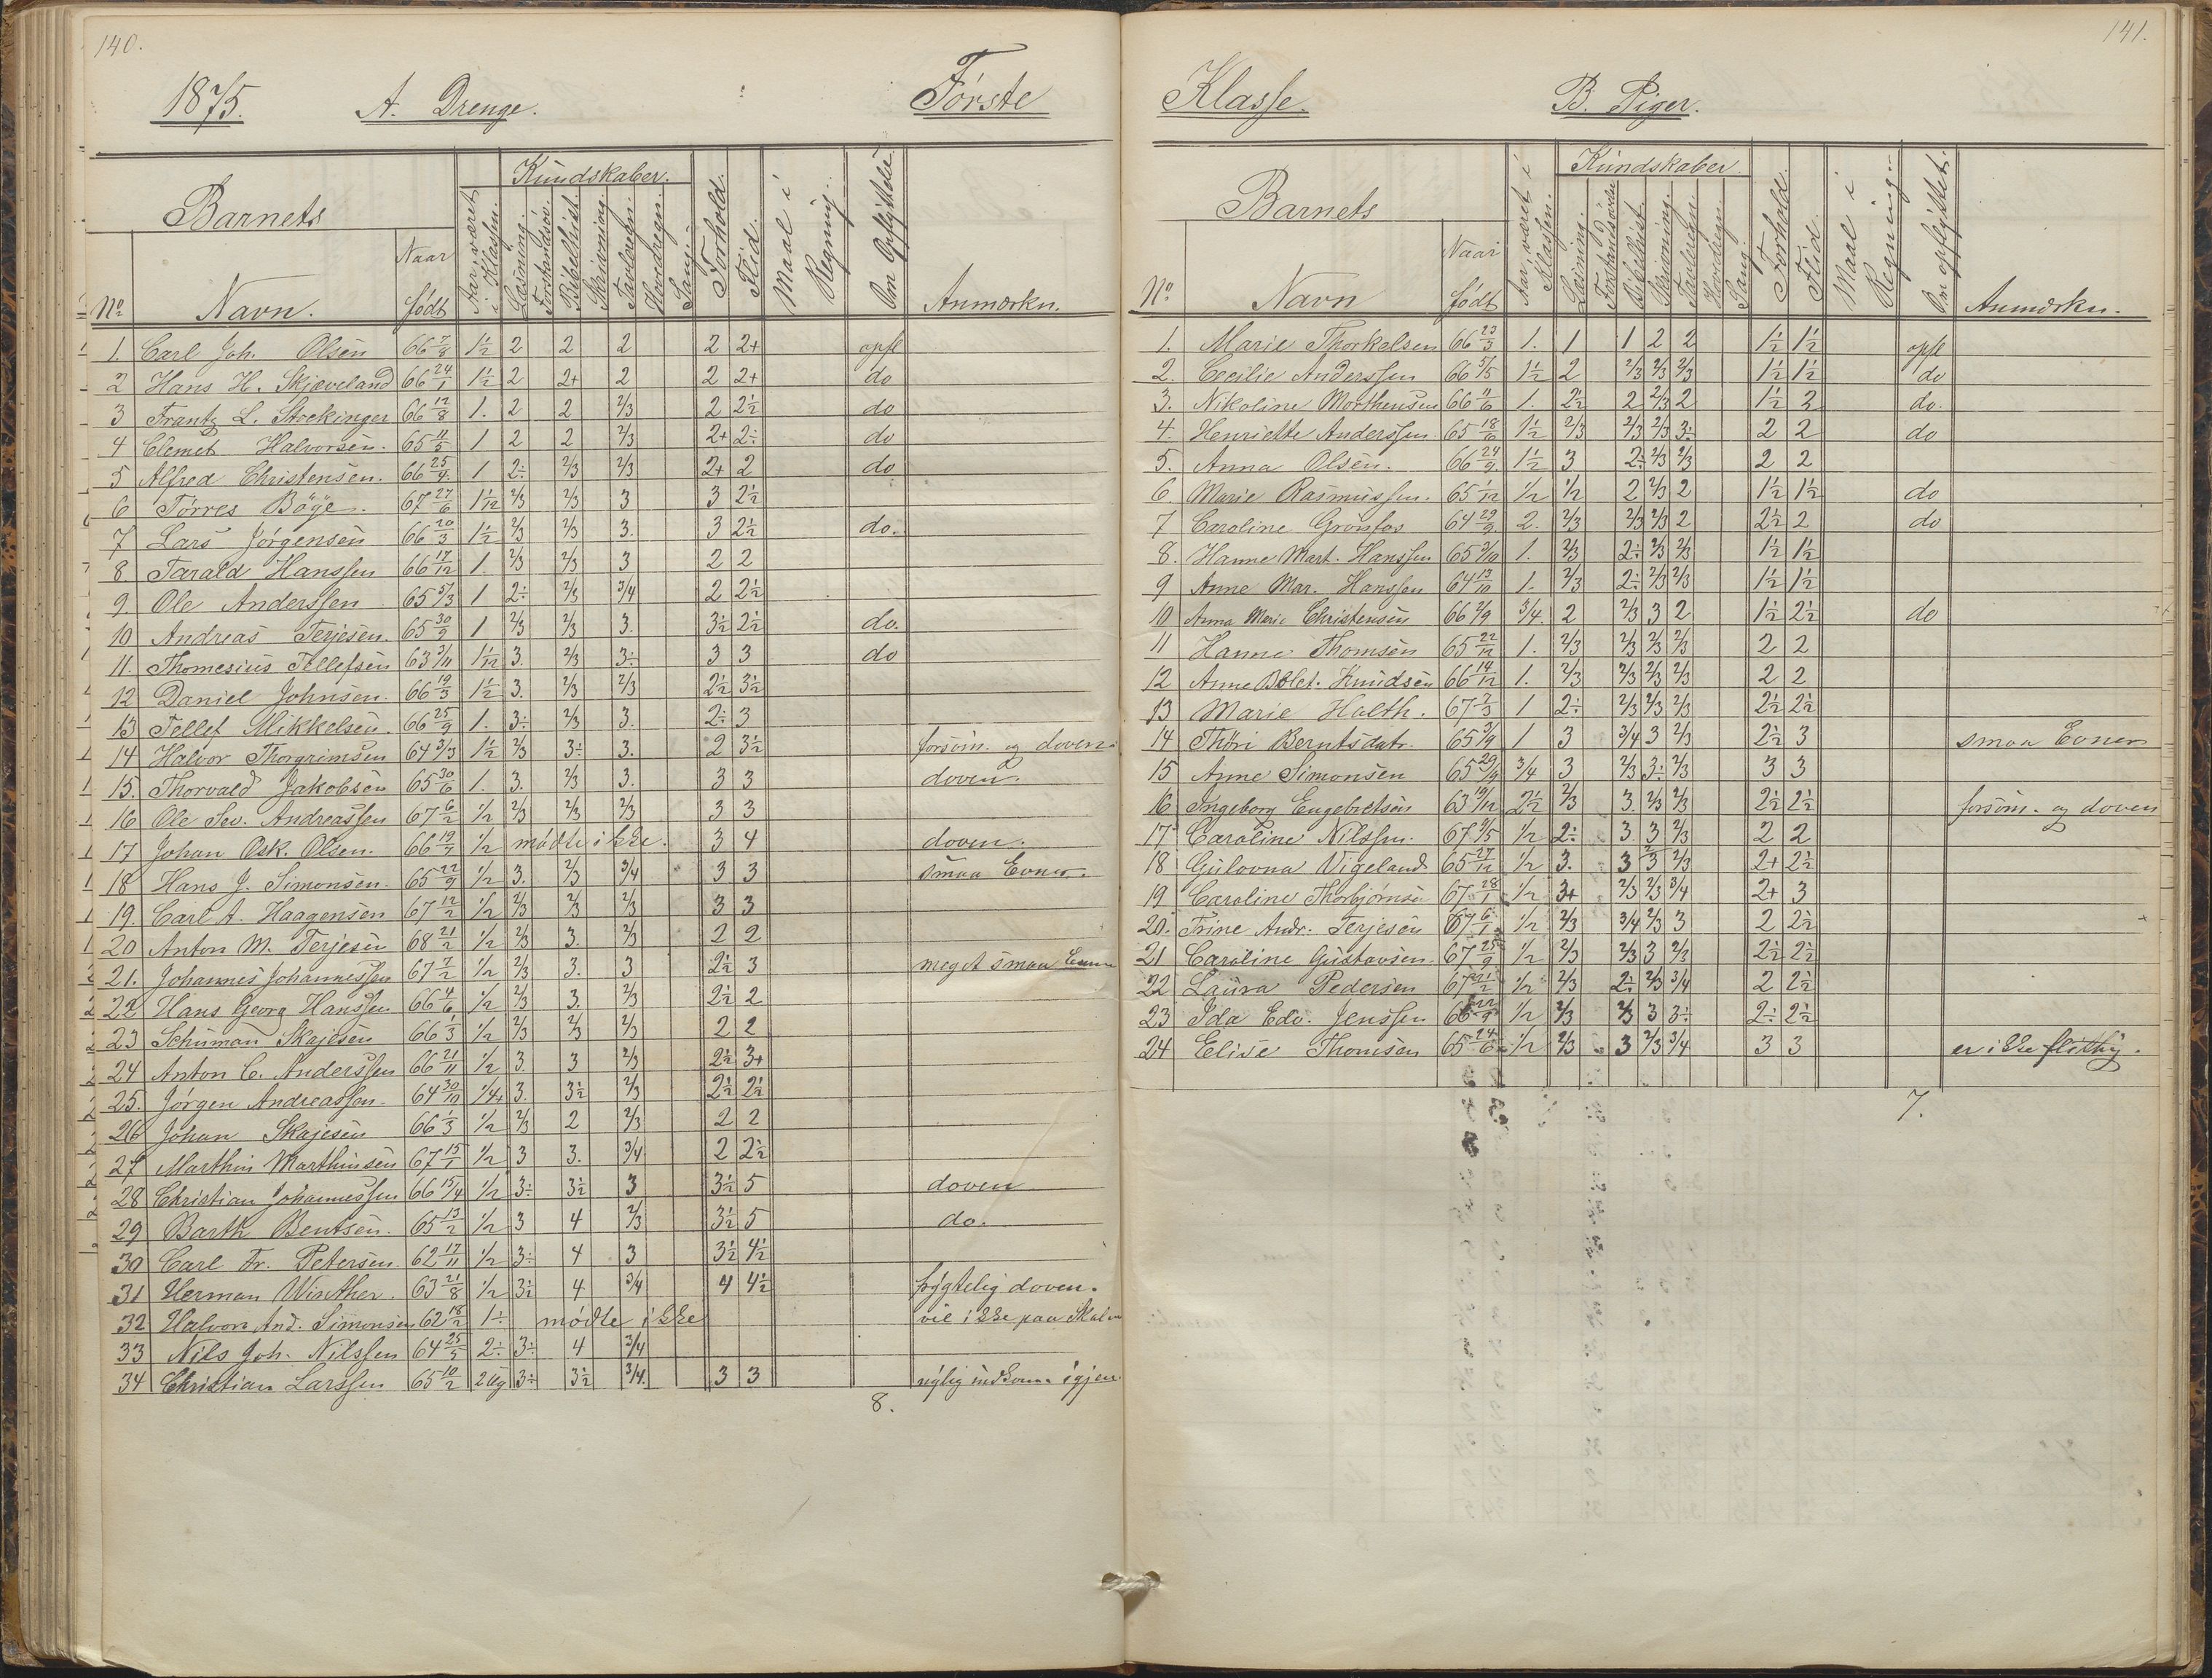 140.
1875. A. Drenge. Første
Barnets
Kundskaber.
No Navn. Naar født Aar, været i Klassen. Læsning. Forstandsøv. Bibelhist. Skrivning. Tavleregn. Hovedregn. Sang. Forhold. Flid. Maal i Regning. Om Opflyttelse Anmærkn.
1. Carl Joh. Olsen 66 7/8 1 1/2 2 2 2 2 2+ opfl
2 Hans H. Skjæveland 66 24/1 1 1/2 2 2+ 2 2 2+ do
3 Frantz L. Stockinger 66 12/8 1. 2 2 2/3 2 2 1/2 do
4 Clemet Halvorsen. 65 11/5 1 2 2 2/3 2+ 2÷ do
5 Alfred Christensen. 66 25/4 1 2÷ 2/3 2/3 2+ 2 do
6 Tørres Bøge. 67 27/6 1 1/12 2/3 2/3 3 3 2 1/2
7 Lars Jørgensen 66 20/3 1 1/2 2/3 2/3 3. 3 2 1/2 do.
8. Tarald Hanssen 66 17/12 1. 2/3 2/3 3 2 2
9. Ole Anderssen 65 5/3 1 2÷ 2/3 3/4 2 2 1/2
10 Andreas Terjesen. 65 30/9 1 2/3 2/3 3. 3 1/2 2 1/2 do.
11. Thomesius Tellefsen 63 3/11 1 1/12 3. 2/3 3÷ 3 3 do
12 Daniel Johnsen. 66 19/3 1 1/2 3. 2/3 2/3 2 1/2 3 1/2
13 Tellef Mikkelsen. 66 25/9 1. 3÷ 2/3 3. 2÷ 3
14 Halvor Thorgrimsen 64 3/3 1 1/2 2/3 3÷ 3. 2 3 1/2 forsøm. og doven.
15. Thorvald Jakobsen 65 30/6 1. 3. 2/3 3. 3 3 doven.
16 Ole Sev. Andreassen 67 6/2 1/2 2/3 2/3 2/3 3 3
17 Johan Osk. Olsen. 66 19/7 1/2 mødte ikke. 3 4 doven.
18 Hans J. Simonsen. 65 22/9 1/2 3. 2/3 3/4 3 3 smaa Evner.
19. Carl A. Haagensen 67 12/2 1/2 2/3 2/3 2/3 3 3
20 Anton M. Terjesen 68 21/2 1/2 2/3 3. 2/3 2 2
21. Johannes Johannessen 67 7/2 1/2 2/3 3. 3 2 1/2 3 meget smaa Evner
22 Hans Georg Hanssen 66 4/6 1/2 2/3 3. 2/3 2 1/2 2
23 Schuman Skajesen 66 1/3 1/2 2/3 2/3 2/3 2 2
24 Anton C. Anderssen 66 21/11 1/2 3. 3 2/3 2 1/2 3+
25. Jørgen Andreassen. 64 30/10 1/4+ 3. 3 1/2 2/3 2 1/2 2 1/2
26 Johan Skajesen 66 1/3 1/2 2/3 2 2/3 2 2
27 Marthin Marthinsen 67 15/1 1/2 3 3. 3/4 2 2 1/2
28 Christian Johannessen 66 15/4 1/2 3÷ 3 1/2 3 3 1/2 5 doven
29 Barth Bentsen. 65 13/2 1/2 3 4 2/3 3 1/2 5 do.
30 Carl Fr. Petersen. 62 17/11 1/2 3÷ 4 3 3 1/2 4 1/2
31 Herman Winther. 63 21/8 1/2 3 1/2 4 3/4 4 4 1/2 frygtelig doven.
32 Halvor And. Simonsen 62 18/2 1÷ mødte ikke vil ikke paa Skolen
33 Nils Joh. Nilssen 64 25/5 2÷ 3÷ 4 3/4
34 Christian Larssen 65 10/2 2 Ug 3÷ 3 1/2 3/4. 3 3 nylig indkom. igjen.
8.
141.
Klasse. B. Piger.
Barnets
Kundskaber
No. Navn Naar født Aar, været i Klassen. Læsning. Forstandsøvelse Bibelhist. Skrivning. Tavleregn. Hovedregn. Sang Forhold. Flid Maal i Regning. Om opflyttet. Anmærkn.
1. Marie Thorkelsen 66 23/3 1. 1 1 2 2 1 1/2 1 1/2 opfl
2. Cecilie Anderssen 66 5/5 1 1/2 2 2/3 2/3 2/3 1 1/2 1 1/2 do
3. Nikoline Morthensen 66 11/6 1. 2 1/2 2 2/3 2 1 1/2 2 do.
4. Henriette Anderssen. 65 18/6 1 1/2 2/3 2/3 2/3 3÷ 2 2 do
5. Anna Olsen. 66 24/9 1 1/2 3 2÷ 2/3 2/3 2 2
6. Marie Rasmussen. 65 1/12 1/2 1/2 2 2/3 2 1 1/2 1 1/2 do
7 Caroline Grønfos 64 29/9 2. 2/3 2/3 2/3 2 2 1/2 2 do
8. Hanne Mart. Hanssen 65 3/10 1. 2/3 2÷ 2/3 2/3 1 1/2 1 1/2
9 Anne Mar. Hanssen 64 13/10 1. 2/3 2÷ 2/3 2/3 1 1/2 1 1/2
10 Anna Marie Christensen 66 2/9 3/4. 2 2/3 3 2 1 1/2 2 1/2 do
11 Hanne Thomsen 65 22/12 1. 2/3 2/3 2/3 2/3 2 2
12 Anne Bolet. Knudsen 66 14/12 1. 2/3 2/3 2/3 2/3 2 2
13 Marie Holth. 67 7/3 1 2÷ 2/3 2/3 2/3 2 1/2 2 1/2
14 Thøri Berntsdatr. 65 3/9 1 3 3/4 3 2/3 2 1/2 3 smaa Evner
15 Anne Simonsen 65 29/9 3/4 3 2/3 3÷ 2/3 3 3
16 Ingeborg Engebretsen 63 19/12 2 1/2 2/3 3. 2/3 2/3 2 1/2 2 1/2 forsøm. og doven
17 Caroline Nilssen. 67 9/5 1/2 2÷ 3. 3 2/3 2 2
18 Gulovna Vigeland 65 27/12 1/2 3. 3 3 2/3 2+ 2 1/2
19 Caroline Thorbjørnsen 67 28/1 1/2 3+ 2/3 2/3 3/4 2+ 3
20. Trine Andr. Terjesen 67 6/1 1/2 2/3 3/4 2/3 3 2 2 1/2
21 Caroline Gustavsen. 67 25/9 1/2 2/3 2/3 3 2/3 2 1/2 2 1/2
22 Laura Pedersen 67 21/2 1/2 2/3 2÷ 2/3 3/4 2 2 1/2
23 Ida Edv. Jenssen 66 22/9 1/2 2/3 2/3 3 3÷ 2÷ 2 1/2
24 Elise Thomsen 65 24/6 1/2 2/3 3 2/3 3/4 3 3 er ikke flittig.
7.